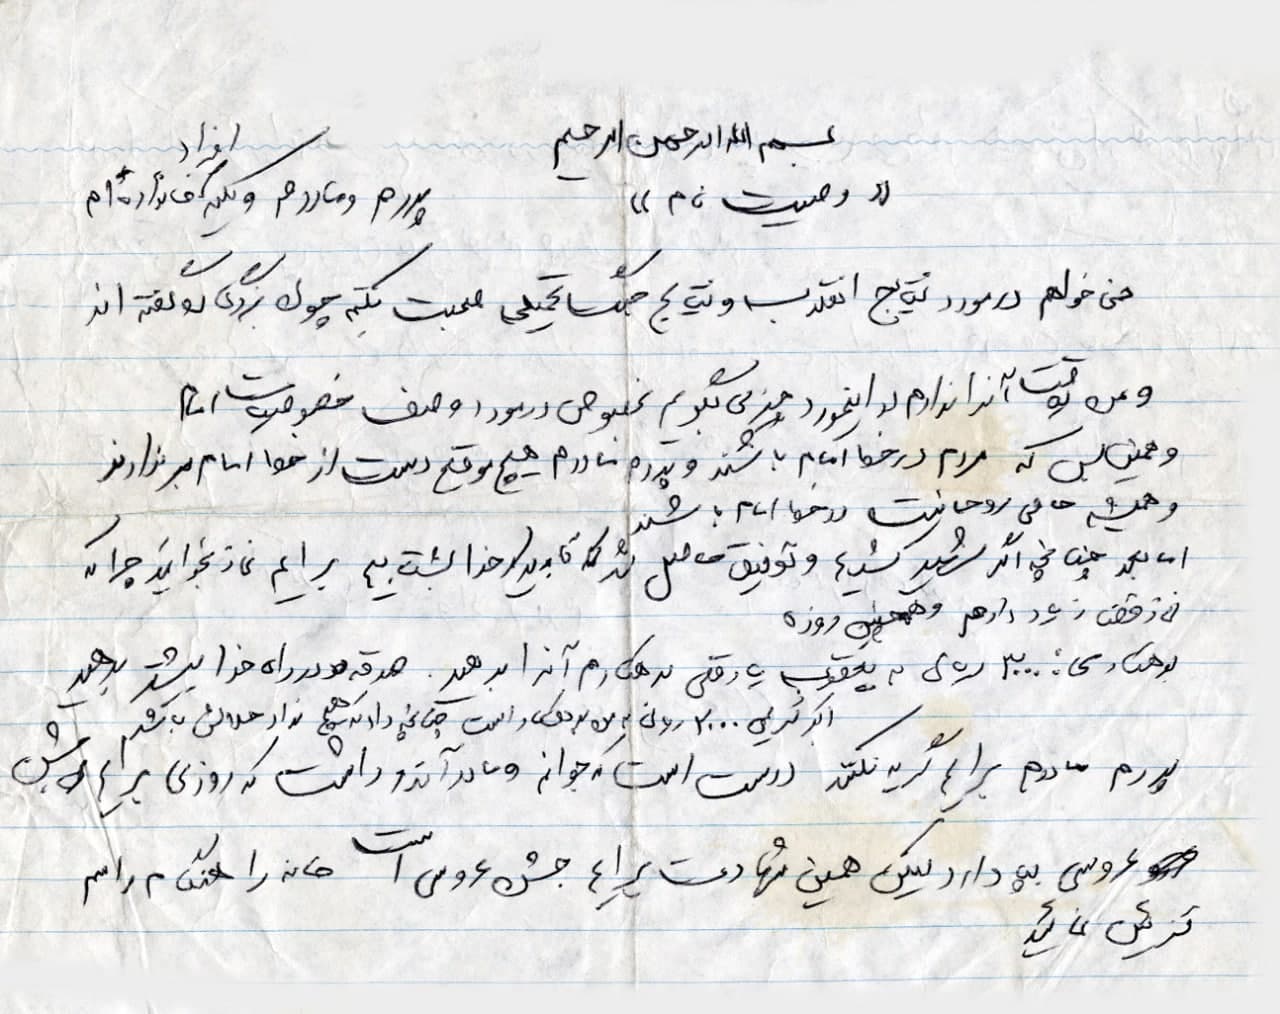 بسم الله الرحمن الرحیم
« وصیت نام »
پدرم و مادرم و دیگر افراد خانواده ام
نمی خواهم در مورد نتایج انقلاب و نتایج جنگ تحمیلی صحبت بکنم چون بزرگان گفته اند
و من قوت آنرا ندارم در اینمورد چیزی بگویم بخصوص در مورد وصف خصوصیت امام
و همین بس که مردم در خط امام باشند و پدرم مادرم هیچ موقع دست از خط امام بر ندارند
و همیشه حامی روحانیت در خط امام باشند
اما بعد چنانچه اگر شهید شدم و توفیق حاصل شد که تا بدیدار خدا بشتابیم برایم نماز بخوانید چرا که
نماز قضا زیاد دارم و همچنین روزه
بدهکاری: ۳۰۰۰ ریال به یعقوب بدهکارم آنرا بدهید. صدقه در راه خدا بیشتر بدهید
اکبر ۲۰۰۰ ریال به من بدهکار است چنانچه داد که هیچ نداد حلالش باشد
پدرم مادرم برایم گریه نکنید درست است که جوانم و مادر آرزو داشت که روزی برایم جشن
عروسی بپا دارد لیکن همین شهادت برایم جشن عروسی است خانه را هنگام مراسم
تزیین نمائید